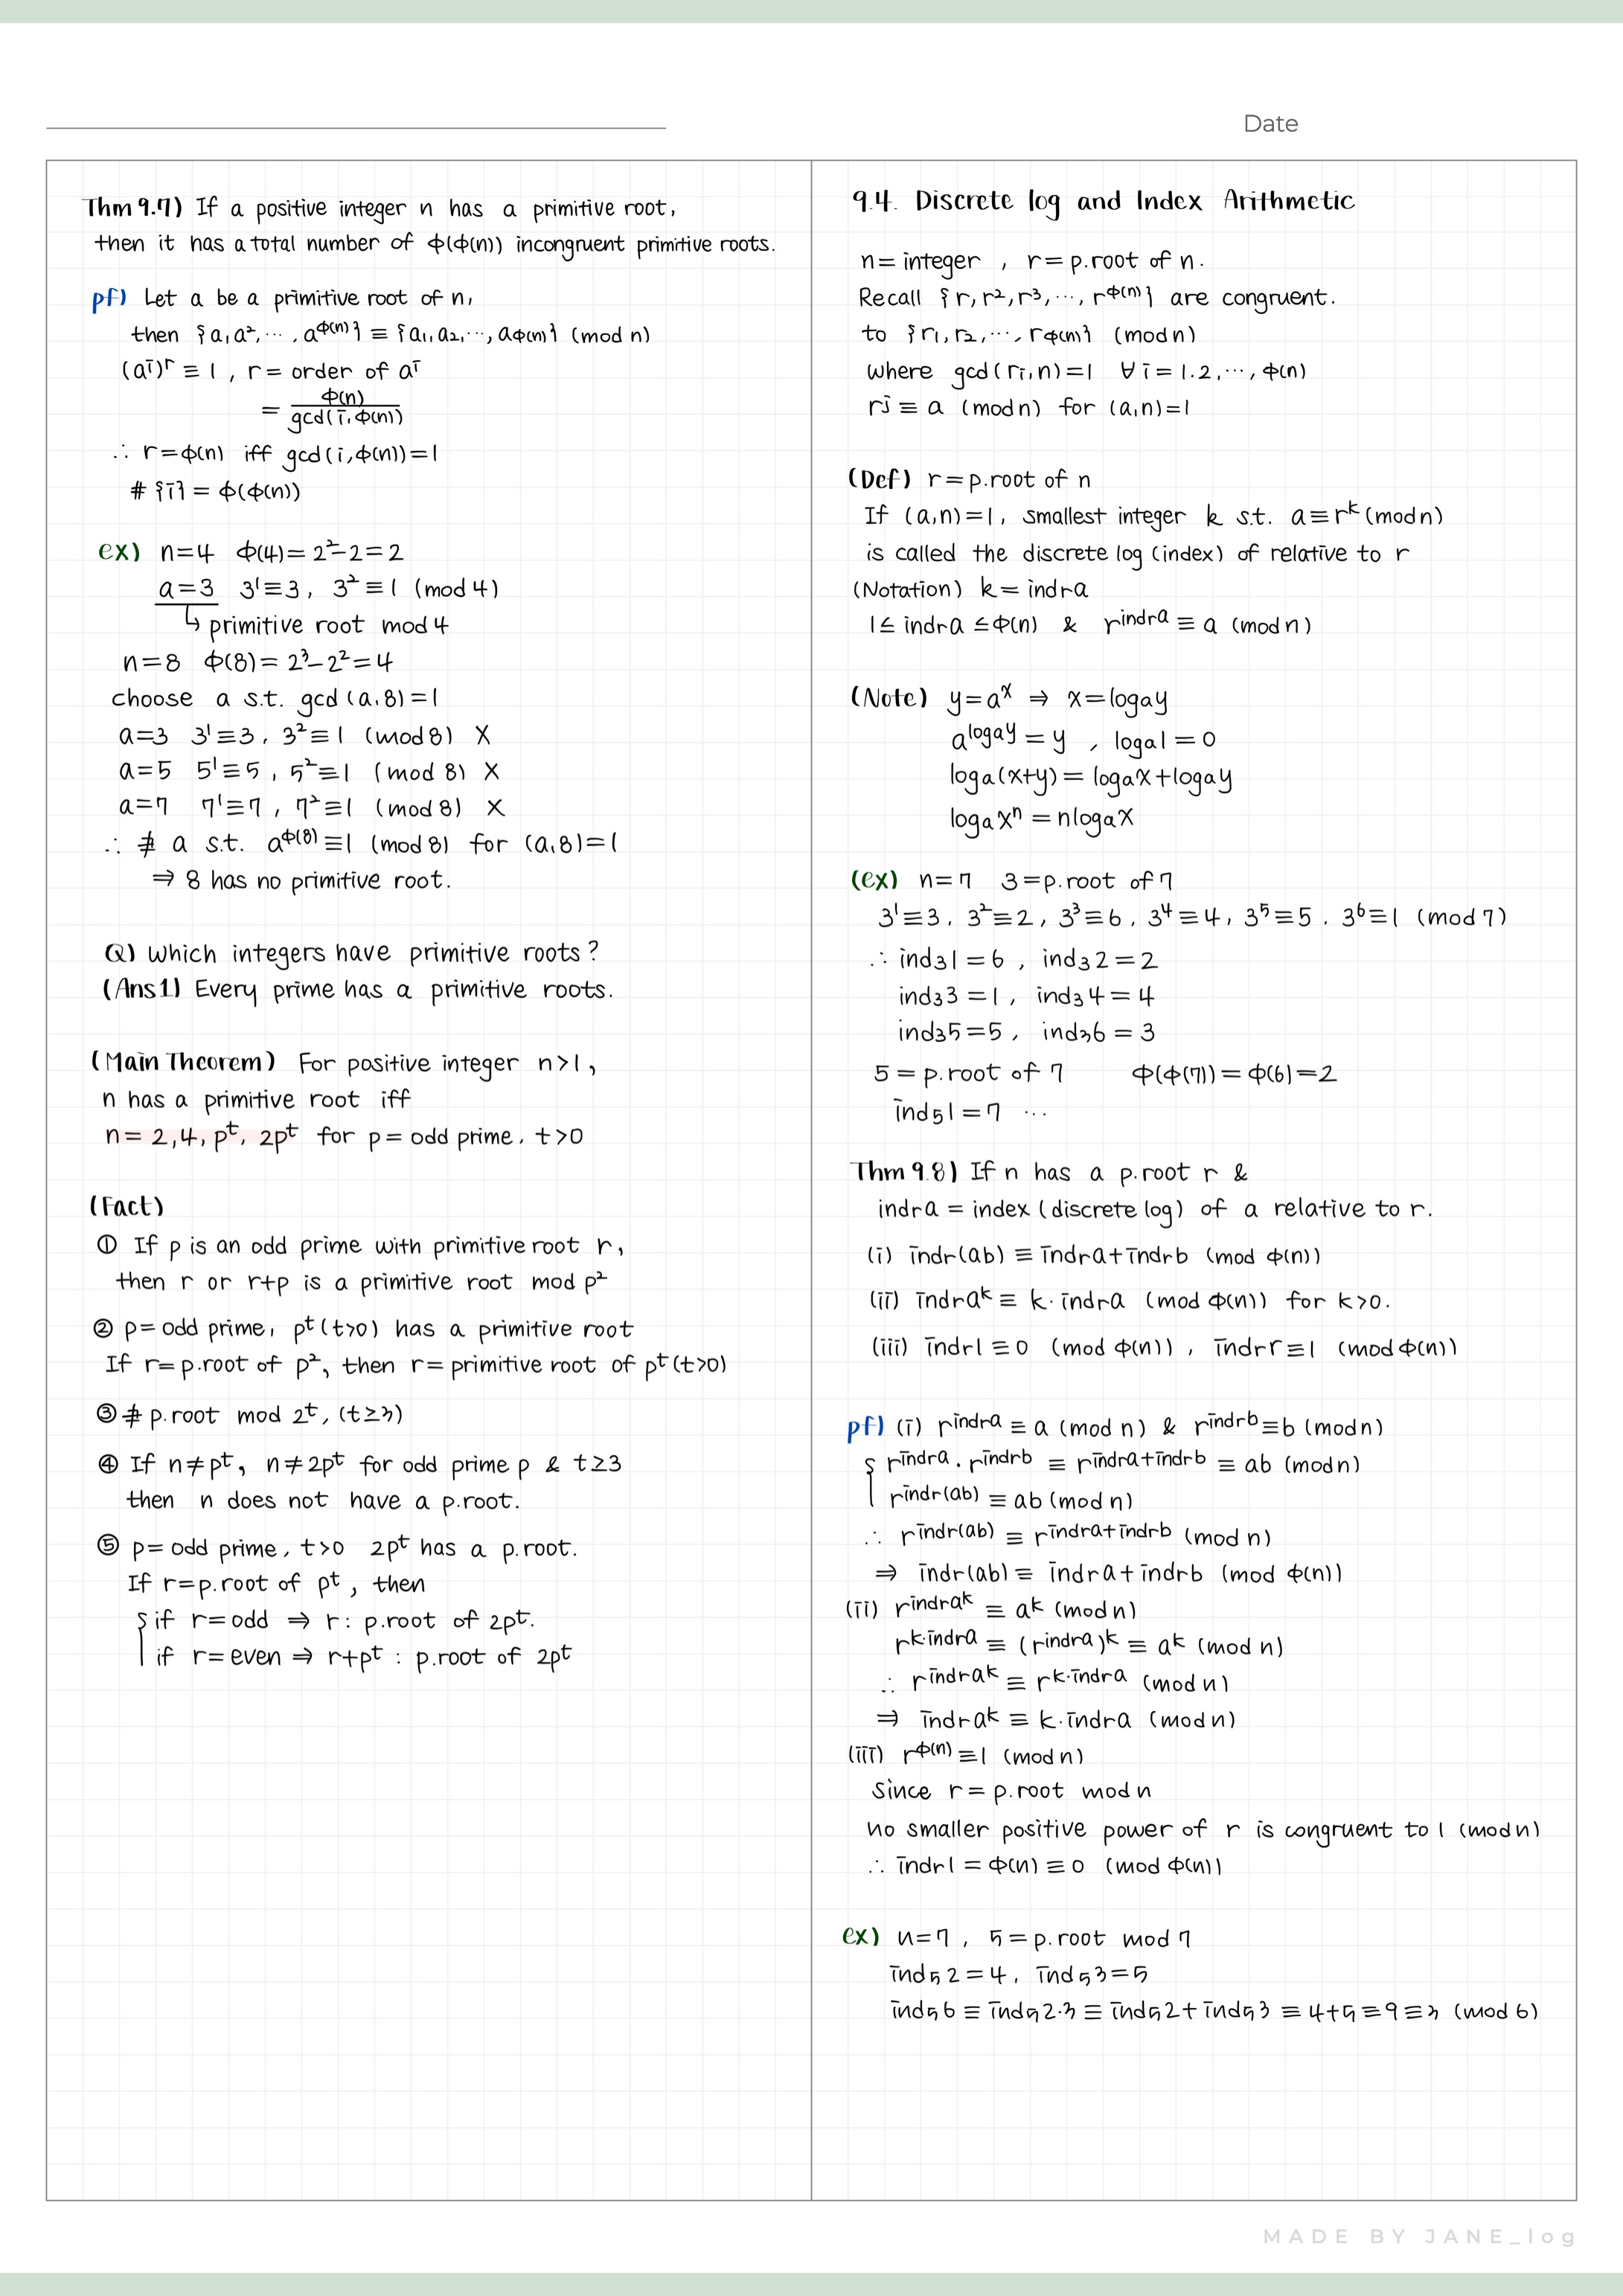 Date
Thm 9.7) If a positive integer n has a primitive root,
then it has a total number of ϕ(ϕ(n)) incongruent primitive roots.
pf) Let a be a primitive root of n,
then {a, a², ⋯, a^ϕ(n)} ≡ {a₁, a₂, ⋯, a_ϕ(n)} (mod n)
(a^i)^r ≡ 1, r = order of a^i
= ϕ(n) / gcd(i, ϕ(n))
∴ r=ϕ(n) iff gcd(i, ϕ(n))=1
# {i} = ϕ(ϕ(n))
ex) n=4 ϕ(4)= 2²-2=2
a=3 3¹≡3, 3²≡1 (mod 4)
↳ primitive root mod 4
n=8 ϕ(8)= 2³-2²=4
choose a s.t. gcd(a,8)=1
a=3 3¹≡3, 3²≡1 (mod 8) X
a=5 5¹≡5, 5²≡1 (mod 8) X
a=7 7¹≡7, 7²≡1 (mod 8) X
∴ ∄ a s.t. a^ϕ(8)≡1 (mod 8) for (a,8)=1
⇒ 8 has no primitive root.
Q) Which integers have primitive roots?
(Ans1) Every prime has a primitive roots.
(Main Theorem) For positive integer n>1,
n has a primitive root iff
n= 2, 4, p^t, 2p^t for p= odd prime, t>0
(Fact)
① If p is an odd prime with primitive root r,
then r or r+p is a primitive root mod p²
② p= odd prime, p^t (t>0) has a primitive root
If r=p.root of p², then r= primitive root of p^t (t>0)
③ ∄ p.root mod 2^t, (t≥3)
④ If n≠p^t, n≠2p^t for odd prime p & t≥3
then n does not have a p.root.
⑤ p= odd prime, t>0 2p^t has a p.root.
If r=p.root of p^t, then
{ if r=odd ⇒ r: p.root of 2p^t.
if r=even ⇒ r+p^t : p.root of 2p^t
9.4. Discrete log and Index Arithmetic
n= integer , r= p.root of n.
Recall {r, r², r³, ⋯, r^ϕ(n)} are congruent.
to {r₁, r₂, ⋯, r_ϕ(n)} (mod n)
where gcd(rᵢ, n)=1 ∀i=1.2, ⋯, ϕ(n)
r^j ≡ a (mod n) for (a,n)=1
(Def) r=p.root of n
If (a,n)=1, smallest integer k s.t. a≡r^k (mod n)
is called the discrete log (index) of relative to r
(Notation) k= ind_r a
1≤ ind_r a ≤ϕ(n) & r^(ind_r a) ≡ a (mod n)
(Note) y=a^x ⇒ x=log_a y
a^(log_a y) = y , log_a 1 = 0
log_a(x+y) = log_a x+log_a y
log_a x^n = nlog_a x
(ex) n=7 3=p.root of 7
3¹≡3, 3²≡2, 3³≡6, 3⁴≡4, 3⁵≡5, 3⁶≡1 (mod 7)
∴ ind₃1 = 6 , ind₃2 = 2
ind₃3 = 1 , ind₃4 = 4
ind₃5 = 5 , ind₃6 = 3
5 = p.root of 7 ϕ(ϕ(7)) = ϕ(6) = 2
ind₅1 = 7 ⋯
Thm 9.8) If n has a p.root r &
ind_r a = index (discrete log) of a relative to r.
(i) ind_r(ab) ≡ ind_r a + ind_r b (mod ϕ(n))
(ii) ind_r a^k ≡ k·ind_r a (mod ϕ(n)) for k>0.
(iii) ind_r 1 ≡ 0 (mod ϕ(n)) , ind_r r ≡ 1 (mod ϕ(n))
pf) (i) r^(ind_r a) ≡ a (mod n) & r^(ind_r b) ≡ b (mod n)
{ r^(ind_r a) · r^(ind_r b) ≡ r^(ind_r a + ind_r b) ≡ ab (mod n)
r^(ind_r(ab)) ≡ ab (mod n)
∴ r^(ind_r(ab)) ≡ r^(ind_r a + ind_r b) (mod n)
⇒ ind_r(ab) ≡ ind_r a + ind_r b (mod ϕ(n))
(ii) r^(ind_r a^k) ≡ a^k (mod n)
r^(k·ind_r a) ≡ (r^(ind_r a))^k ≡ a^k (mod n)
∴ r^(ind_r a^k) ≡ r^(k·ind_r a) (mod n)
⇒ ind_r a^k ≡ k·ind_r a (mod n)
(iii) r^ϕ(n) ≡ 1 (mod n)
Since r = p.root mod n
no smaller positive power of r is congruent to 1 (mod n)
∴ ind_r 1 = ϕ(n) ≡ 0 (mod ϕ(n))
ex) n=7, 5=p.root mod 7
ind₅2 = 4, ind₅3 = 5
ind₅6 ≡ ind₅2·3 ≡ ind₅2 + ind₅3 ≡ 4+5 ≡ 9 ≡ 3 (mod 6)
MADE BY JANE_log